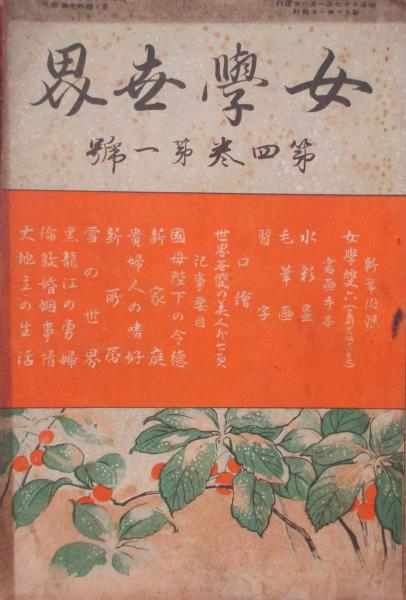 女學世界
第四卷第一號
新年附録
女學雙六
書画手本
水彩畫
毛筆画
習字
口繪
世界無雙の美人外七頁
記事要目
國母陛下の令德
新家庭
貴婦人の嗜好
新所帶
雪の世界
黒龍江の勇婦
倫敦婚姻事情
大地主の生活